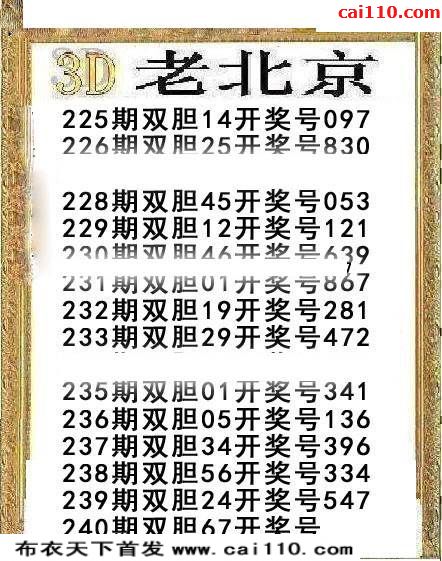 cai110.com
3D 老北京
225期双胆14开奖号097
226期双胆25开奖号830
228期双胆45开奖号053
229期双胆12开奖号121
230期双胆46开奖号639
231期双胆01开奖号867
232期双胆19开奖号281
233期双胆29开奖号472
235期双胆01开奖号341
236期双胆05开奖号136
237期双胆34开奖号396
238期双胆56开奖号334
239期双胆24开奖号547
240期双胆67开奖号
布衣天下首发 www.cai110.com